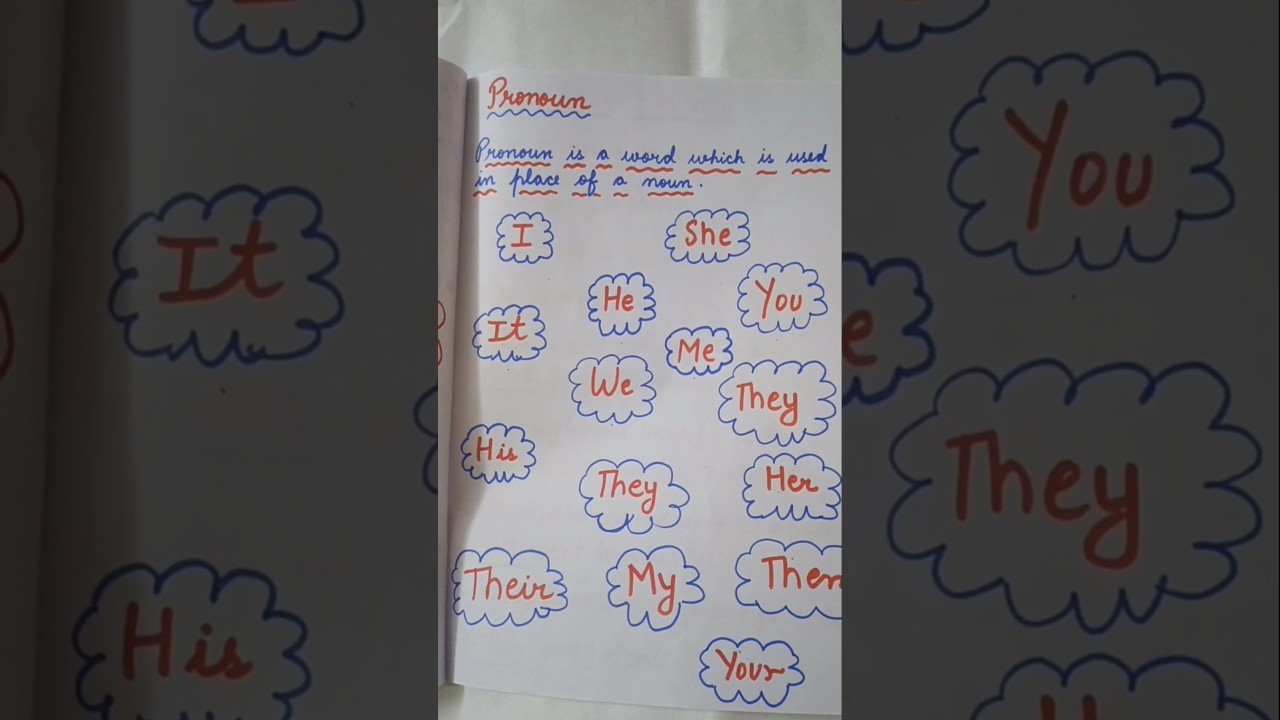 Pronoun
Pronoun is a word which is used
in place of a noun.
I
She
He
You
It
Me
We
They
His
They
Her
Their
My
Your
It
His
You
They